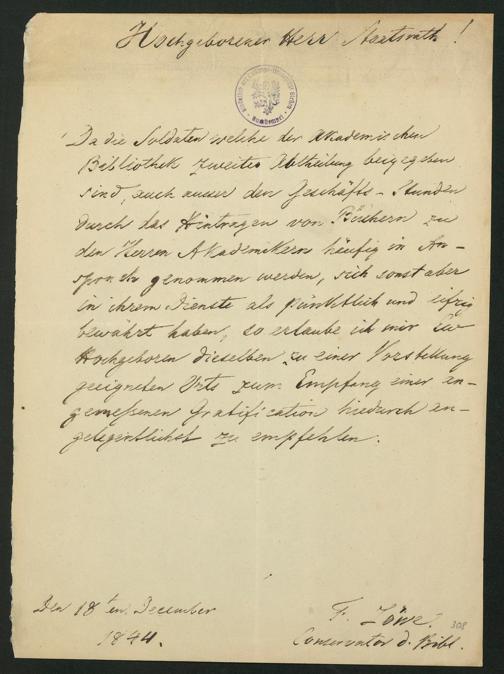 Hochgeborener Herr Staatsrath!
Da die Soldaten welche der Akademischen
Bibliothek zweiter Abtheilung beigegeben
sind, auch ausser den Geschäfts-Stunden
durch das Hintragen von Büchern zu
den Herren Akademikern häufig in An-
spruch genommen werden, sich sonst aber
in ihrem Dienste als pünktlich und eifrig
bewährt haben, so erlaube ich mir Ew
Hochgeboren dieselben zu einer Vorstellung
geeigneten Orts zum Empfang einer an-
gemeßenen Gratification hiedurch an-
gelegentlichst zu empfehlen.
Den 18ten December
1844.
F. Löwe.
Conservator d. Bibl.
308